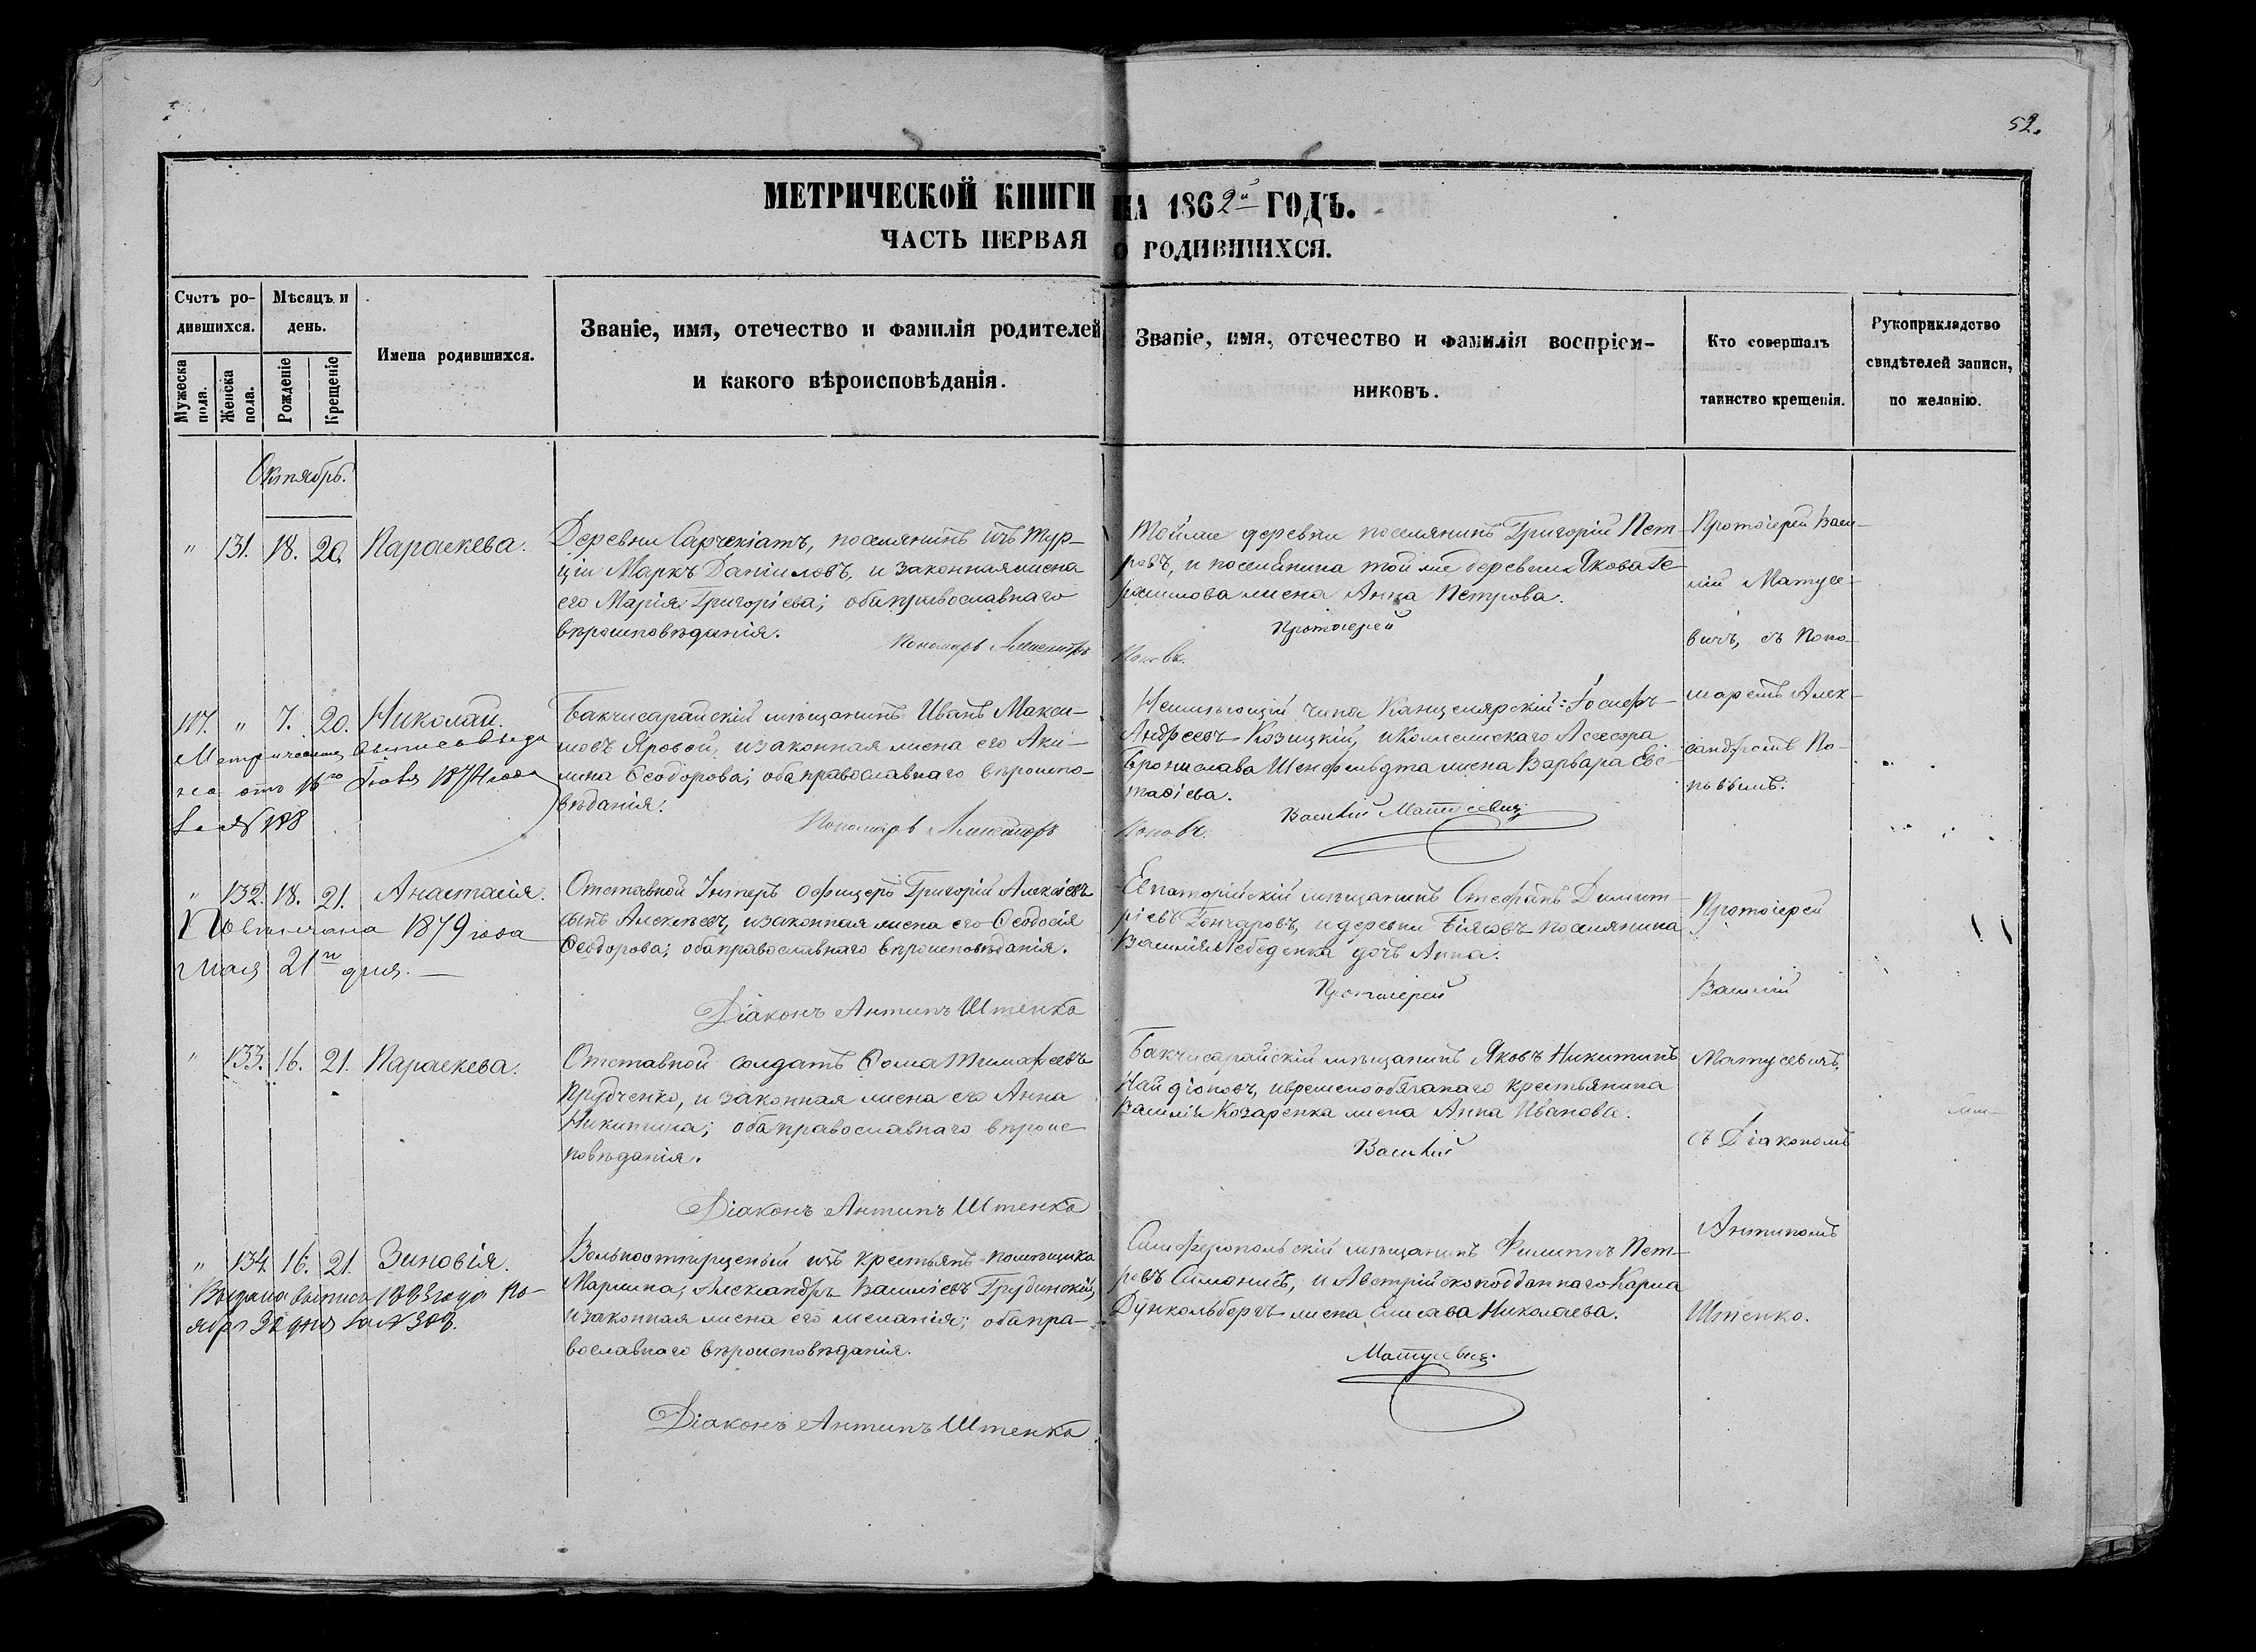 52.
МЕТРИЧЕСКОЙ КНИГИ НА 1862й ГОДЪ.
ЧАСТЬ ПЕРВАЯ О РОДИВШИХСЯ.
Счетъ ро-
дившихся.
Мужеска пола.
Женска пола.
Мѣсяцъ и
день.
Рожденіе
Крещеніе
Имена родившихся.
Званіе, имя, отечество и фамилія родителей
и какого вѣроисповѣданія.
Званіе, имя, отечество и фамилія воспріем-
никовъ.
Кто совершалъ
таинство крещенія.
Рукоприкладство
свидѣтелей записи,
по желанію.
Октябрь.
" 131. 18. 20. Параскева.
Деревни Сарчекіатъ, поселянинъ изъ Тур-
ціи Маркъ Даніиловъ, и законная жена
его Марія Григоріева; оба православнаго
вѣроисповѣданія.
Пономарь Александръ
Поповъ.
Той же деревни поселянинъ Григорій Пет-
ровъ, и поселянина той же деревни Якова Ге-
расимова жена Анна Петрова.
Протоіерей
117. " 7. 20. Николай.
Метрическая выпись выда
на отъ 16го 1874 года
за № 118
Бакчисарайскій мѣщанинъ Иванъ Макси-
мовъ Яровой, и законная жена его Аки-
лина Ѳеодорова; оба православнаго вѣроиспо-
вѣданія.
Пономарь Александръ
Поповъ.
Неимѣющій чина Канцелярскій Іосифъ
Андреевъ Козицкій, и Коллежскаго Ассесора
Бронислава Шенфельдта жена Варвара Евс-
тафіева.
Василій Матусевич
Протоіерей Васи-
лій Матусе-
вичъ, съ Поно-
маремъ Алек-
сандромъ По-
повымъ.
" 132. 18. 21. Анастасія.
Повѣнчана 1879 года
Мая 21го дня.
Отставной Унтеръ офицеръ Григорій Алексіевъ
сынъ Алексѣевъ, и законная жена его Ѳеодосія
Ѳеодорова; оба православнаго вѣроисповѣданія.
Діаконъ Антипъ Штенко
Евпаторійскій мѣщанинъ Стефанъ Димит-
ріевъ Гончаровъ, и деревни Біясовъ поселянина
Василія Лебеденка дочь Анна.
Протоіерей
" 133. 16. 21. Параскева.
Отставной солдатъ Ѳома Тимофеевъ
Прудченко, и законная жена его Анна
Никитина; оба православнаго вѣроис-
повѣданія.
Діаконъ Антипъ Штенко
Бакчисарайскій мѣщанинъ Яковъ Никитинъ
Найдіоновъ, и временнообязаннаго крестьянина
Василія Козаренка жена Анна Иванова.
Василій
" 134. 16. 21. Зиновія.
Выдана выпись года Но-
ября дня за №
Вольноотпущенный изъ крестьянъ помѣщика
Маршна, Александръ Василіевъ Грудинскій,
и законная жена его Меланія; оба пра-
вославнаго вѣроисповѣданія.
Діаконъ Антипъ Штенко
Симферопольскій мѣщанинъ Филиппъ Пет-
ровъ Симоничъ, и Австрійскоподданнаго Карла
Дункольбергъ жена Елисава Николаева.
Матусевич.
Протоіерей
Василій
Матусевичъ,
съ Діакономъ
Антипомъ
Штенко.